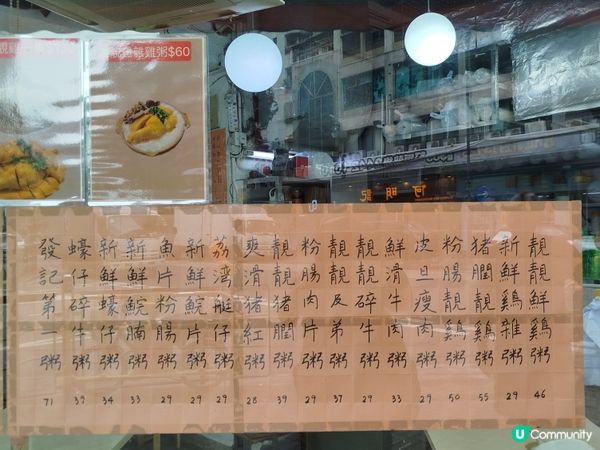 $60
雞粥$60
發記第一粥 71
蠔仔碎牛粥 39
新鮮蠔仔粥 34
新鮮鯇腩粥 33
魚片粉腸粥 29
新鮮鯇片粥 29
荔湾艇仔粥 29
爽滑猪紅粥 28
靚靚猪潤粥 39
粉腸肉片粥 29
靚靚及弟粥 37
靚靚碎牛粥 29
鮮滑牛肉粥 33
皮旦瘦肉粥 29
粉腸靚鷄粥 50
猪潤靚鷄粥 55
新鮮鷄雜粥 29
靚靚鮮鷄粥 46
U Community